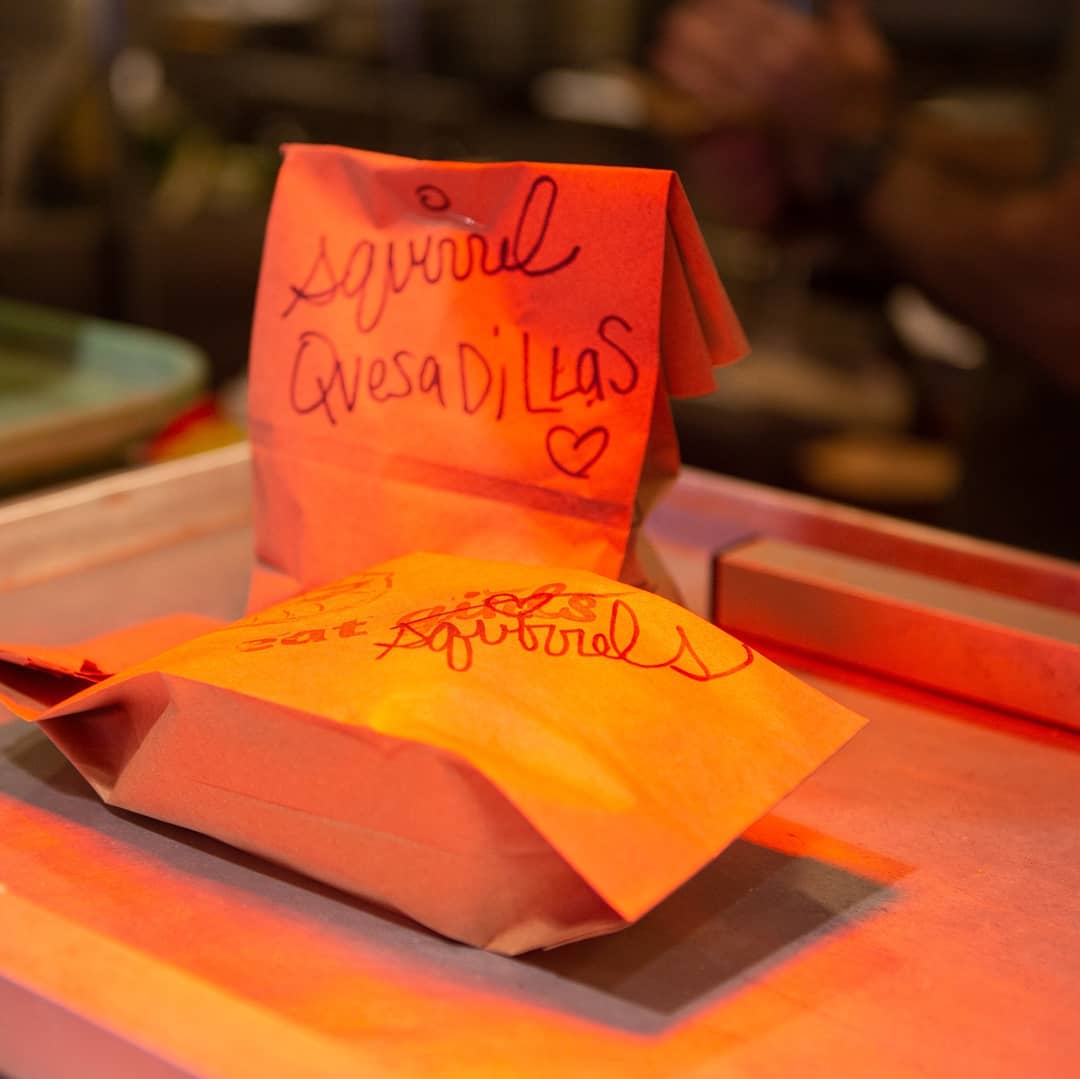 squirrel
QUesaDiLLaS
eat girls
squirrels